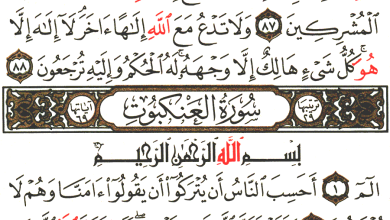 ٱلْمُشْرِكِينَ ٨٧ وَلَا تَدْعُ مَعَ ٱللَّهِ إِلَٰهًا ءَاخَرَ لَا إِلَٰهَ إِلَّا
هُوَ كُلُّ شَىْءٍ هَالِكٌ إِلَّا وَجْهَهُۥ لَهُ ٱلْحُكْمُ وَإِلَيْهِ تُرْجَعُونَ ٨٨
ترتيبها ٢٩ سُورَةُ العَنْكَبُوتِ آياتها ٦٩
بِسْمِ ٱللَّهِ ٱلرَّحْمَٰنِ ٱلرَّحِيمِ
الٓمٓ ١ أَحَسِبَ ٱلنَّاسُ أَن يُتْرَكُوٓا۟ أَن يَقُولُوٓا۟ ءَامَنَّا وَهُمْ لَا